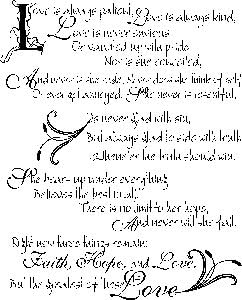 Love is always patient, Love is always kind,
Love is never envious
Or vaunted up with pride.
Nor is she conceited,
And never is she rude, Never does she think of self
Or ever get annoyed. She never is resentful,
Is never glad with sin,
But always glad to side with truth
Whene'er the truth should win.
She bears up under everything
Believes the best in all,
There is no limit to her hope,
And never will she fall.
Right now three things remain:
Faith, Hope, and Love,
But the greatest of these
Love